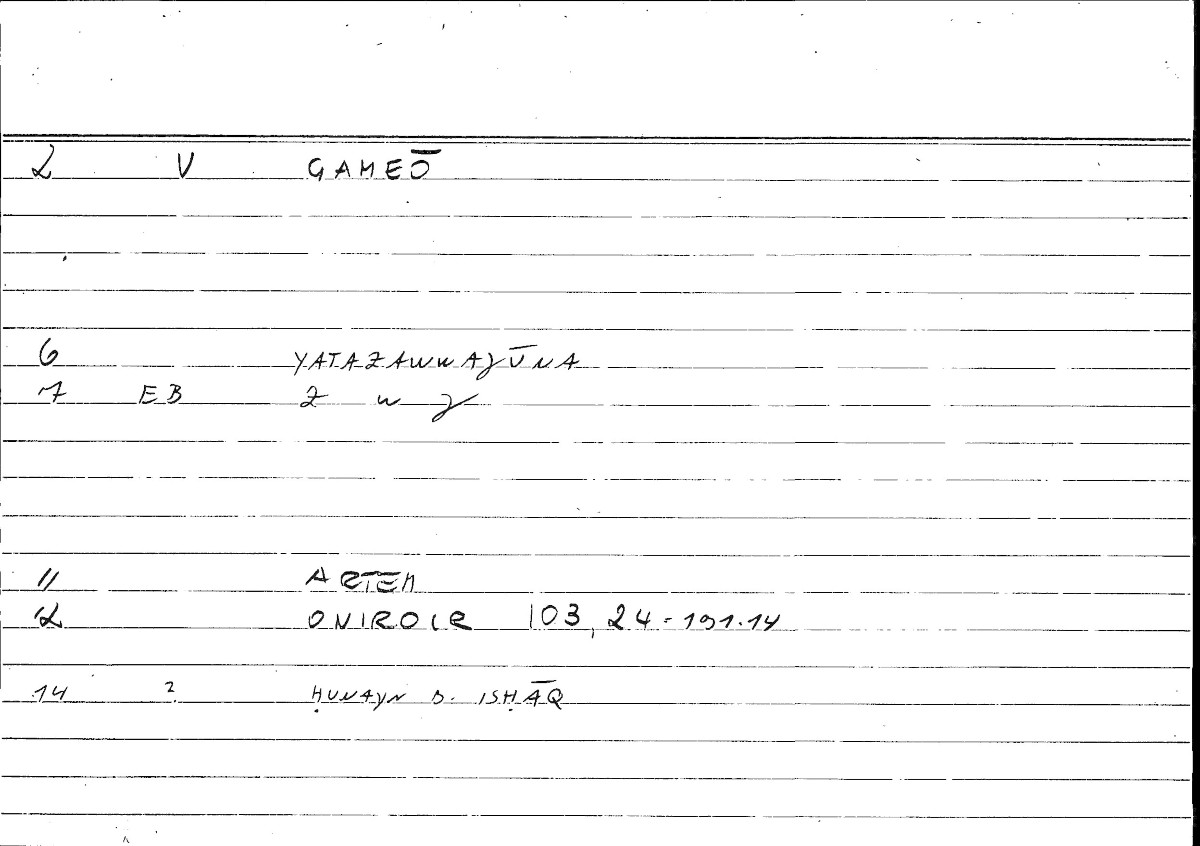 2 V GAMEŌ
6 YATAZAWWAǧŪNA
7 EB Z W ǧ
11 ARTEM
12 ONIROCR 103, 24-191.14
14 ? ḤUNAYN B. ISḤĀQ